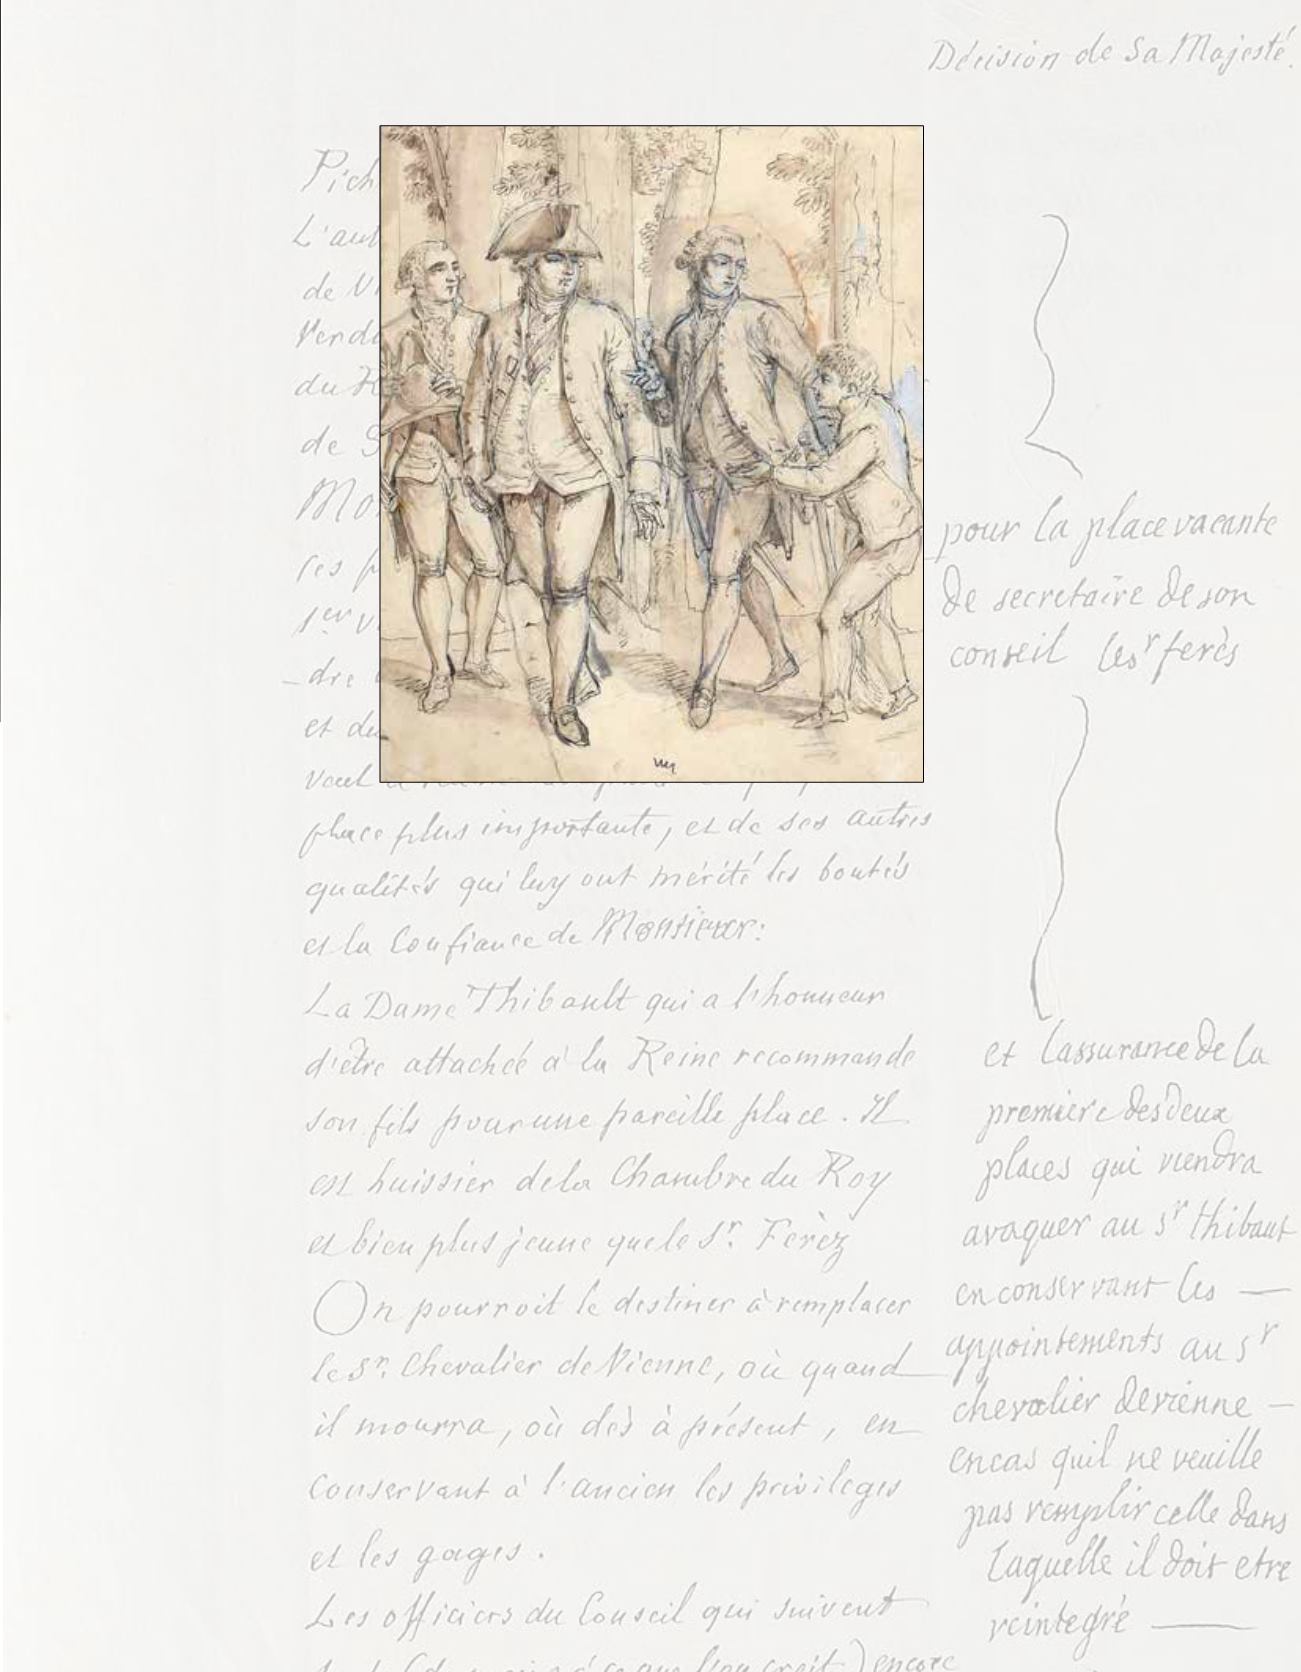 Décision de Sa Majesté.
Pich
L'au
de Vi
Verdu
du R
de S
Mo
ses p
1er v
dre
et du
veut
place plus importante, et de ses autres
qualités qui luy ont mérité les bontés
et la Confiance de Monsieur:
La Dame Thibault qui a l'honneur
d'être attachée à la Reine recommande
son fils pour une pareille place. Il
est huissier de la Chambre du Roy
et bien plus jeune que le Sr. Ferèz
On pourroit le destiner à remplacer
le Sr. Chevalier de Vienne, où quand
il mourra, où dès à présent, en
conservant à l'ancien les privileges
et les gages.
Les officiers du Conseil qui suivent
encore
pour la place vacante
de secretaire de son
conseil le sr ferès
et lassurance de la
premiere des deux
places qui viendra
avaquer au sr thibaut
en conservant les —
appointements au sr
chevalier devienne —
encas quil ne veuille
pas remplir celle dans
laquelle il doit etre
reintegré —